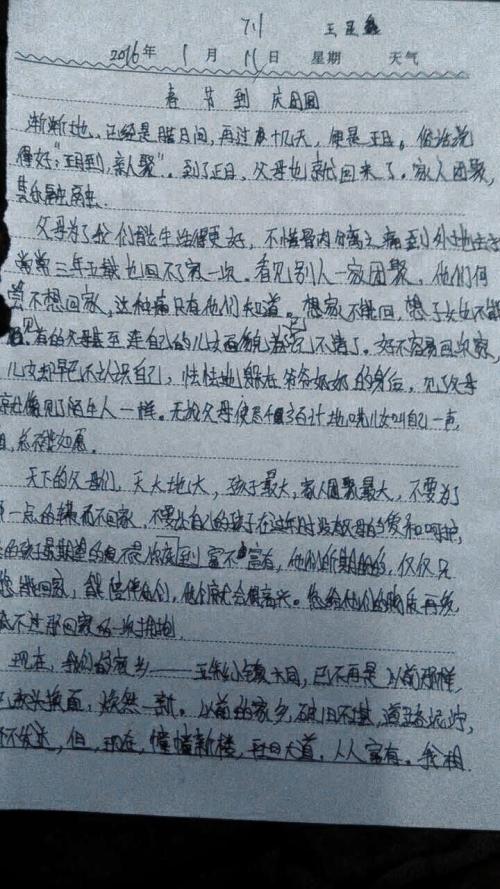 711 王
2016年 1月 11日 星期 天气
春节到 庆团圆
渐渐地,已经是腊月间,再过几天,便是正月。俗话说
得好:"正月到,亲人聚"。到了正月,父母也就回来了。家人团聚,
其乐融融。
父母为了我们能生活得更好,不惜骨肉分离之痛到外地生活
常常三年五载也回不了家一次。看见别人一家团聚,他们何
尝不想回家,这种痛只有他们知道。想家不能回,想子女也不能
见。有的父母甚至连自己的儿女面貌都记不清了。好不容易回次家,
儿女却早已不认识自己,怯怯地躲在爷爷奶奶的身后,见了父母
就像见了陌生人一样。无论父母使尽千方百计地哄儿女叫自己一声,
但,总不能如愿。
天下的父母们,天大地大,孩子最大,家人团聚最大,不要为了
一点的钱而不回家,不要让自己的孩子在过年时没有父母的爱和呵护,
的孩子最期望的不是你到富不富有,他们所期盼的,仅仅只
您能回家,能陪伴他们,他们就会很高兴。您给他们的物质再多
不过那回家的一次拥抱。
现在,我们的家乡——玉米么镇大同,已不再是以前那样,
已改头换面,焕然一新。以前的家乡,破旧不堪,道路泥泞,
不发达,但,现在,幢幢新楼,大道,人人富有。我相